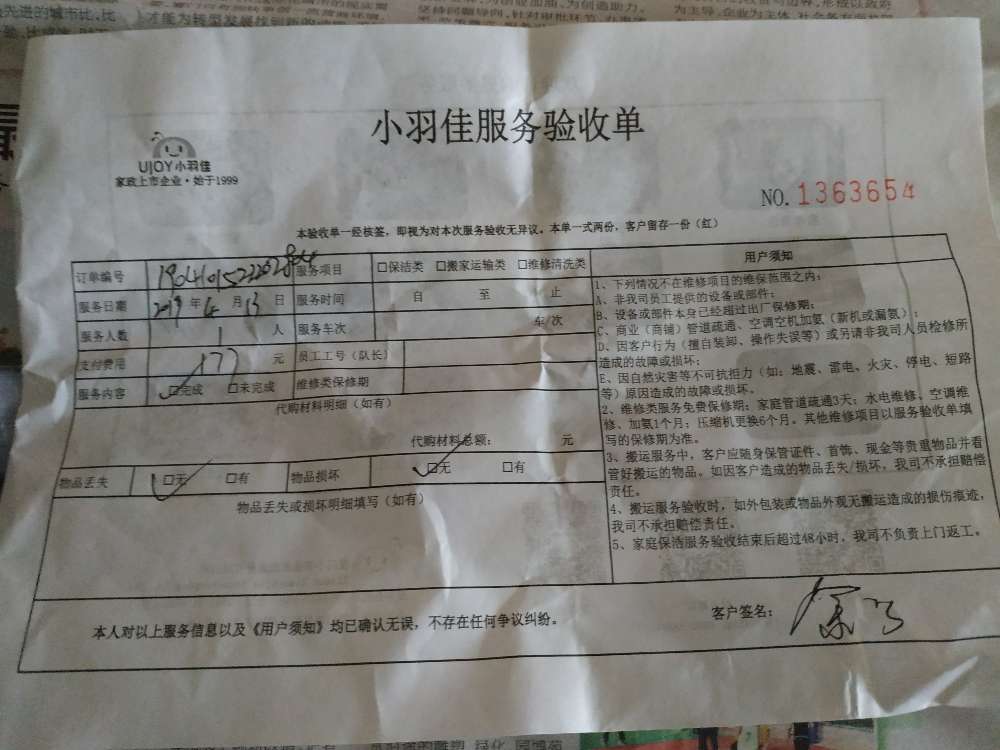 小羽佳服务验收单
UJOY小羽佳
家政上市企业·始于1999
NO. 1363654
本验收单一经核签，即视为对本次服务验收无异议。本单一式两份，客户留存一份（红）
订单编号
服务项目 □保洁类 □搬家运输类 □维修清洗类
服务日期 2019 年 4 月 13 日 服务时间 自 至 止
服务人数 1 人 服务车次 车/次
支付费用 177 元 员工工号（队长）
服务内容 □完成 □未完成 维修类保修期
代购材料明细（如有）
代购材料总额： 元
物品丢失 □无 □有 物品损坏 □无 □有
物品丢失或损坏明细填写（如有）
用户须知
1、下列情况不在维修项目的维保范围之内：
A、非我司员工提供的设备或部件；
B、设备或部件本身已经超过出厂保修期；
C、商业（商铺）管道疏通、空调空机加氨（新机或漏氨）；
D、因客户行为（擅自装卸、操作失误等）或另请非我司人员检修所
造成的故障或损坏；
E、因自然灾害等不可抗拒力（如：地震、雷电、火灾、停电、短路
等）原因造成的故障或损坏。
2、维修类服务免费保修期：家庭管道疏通3天；水电维修、空调维
修、加氨1个月；压缩机更换6个月。其他维修项目以服务验收单填
写的保修期为准。
3、搬运服务中，客户应随身保管证件、首饰、现金等贵重物品并看
管好搬运的物品。如因客户造成的物品丢失/损坏，我司不承担赔偿
责任。
4、搬运服务验收时，如外包装或物品外观无搬运造成的损伤痕迹，
我司不承担赔偿责任。
5、家庭保洁服务验收结束后超过48小时，我司不负责上门返工。
本人对以上服务信息以及《用户须知》均已确认无误，不存在任何争议纠纷。
客户签名：